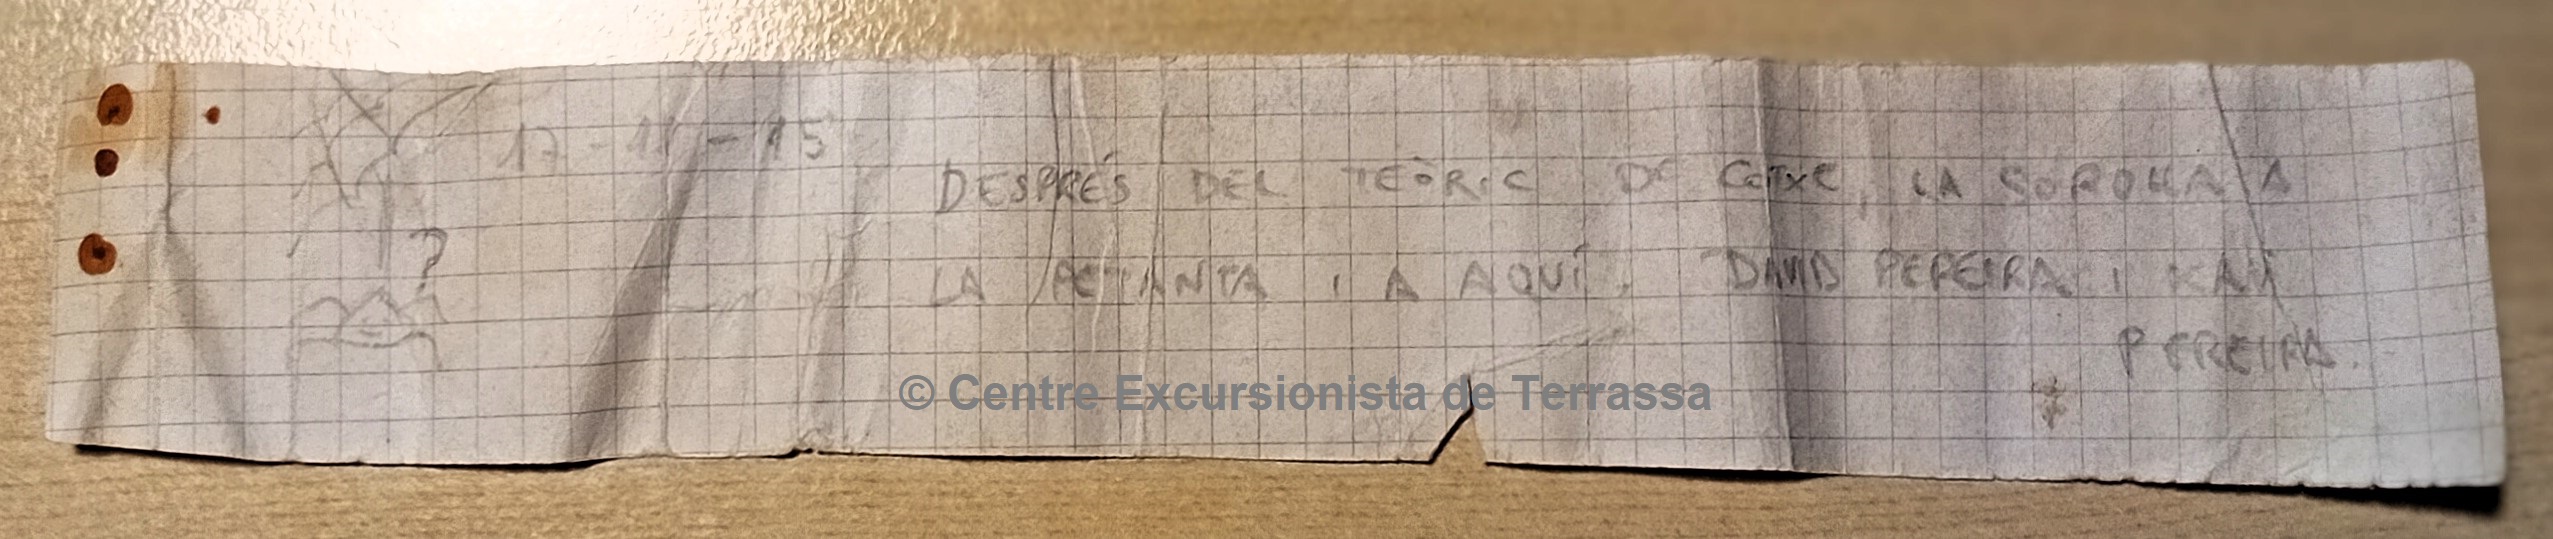 17-11-15
DESPRÉS DEL TEÒRIC DE COTXE, LA SOROLLA A
LA PETJANTA I A AQUÍ. DAVID PEREIRA I
PEREIRA.
?
© Centre Excursionista de Terrassa